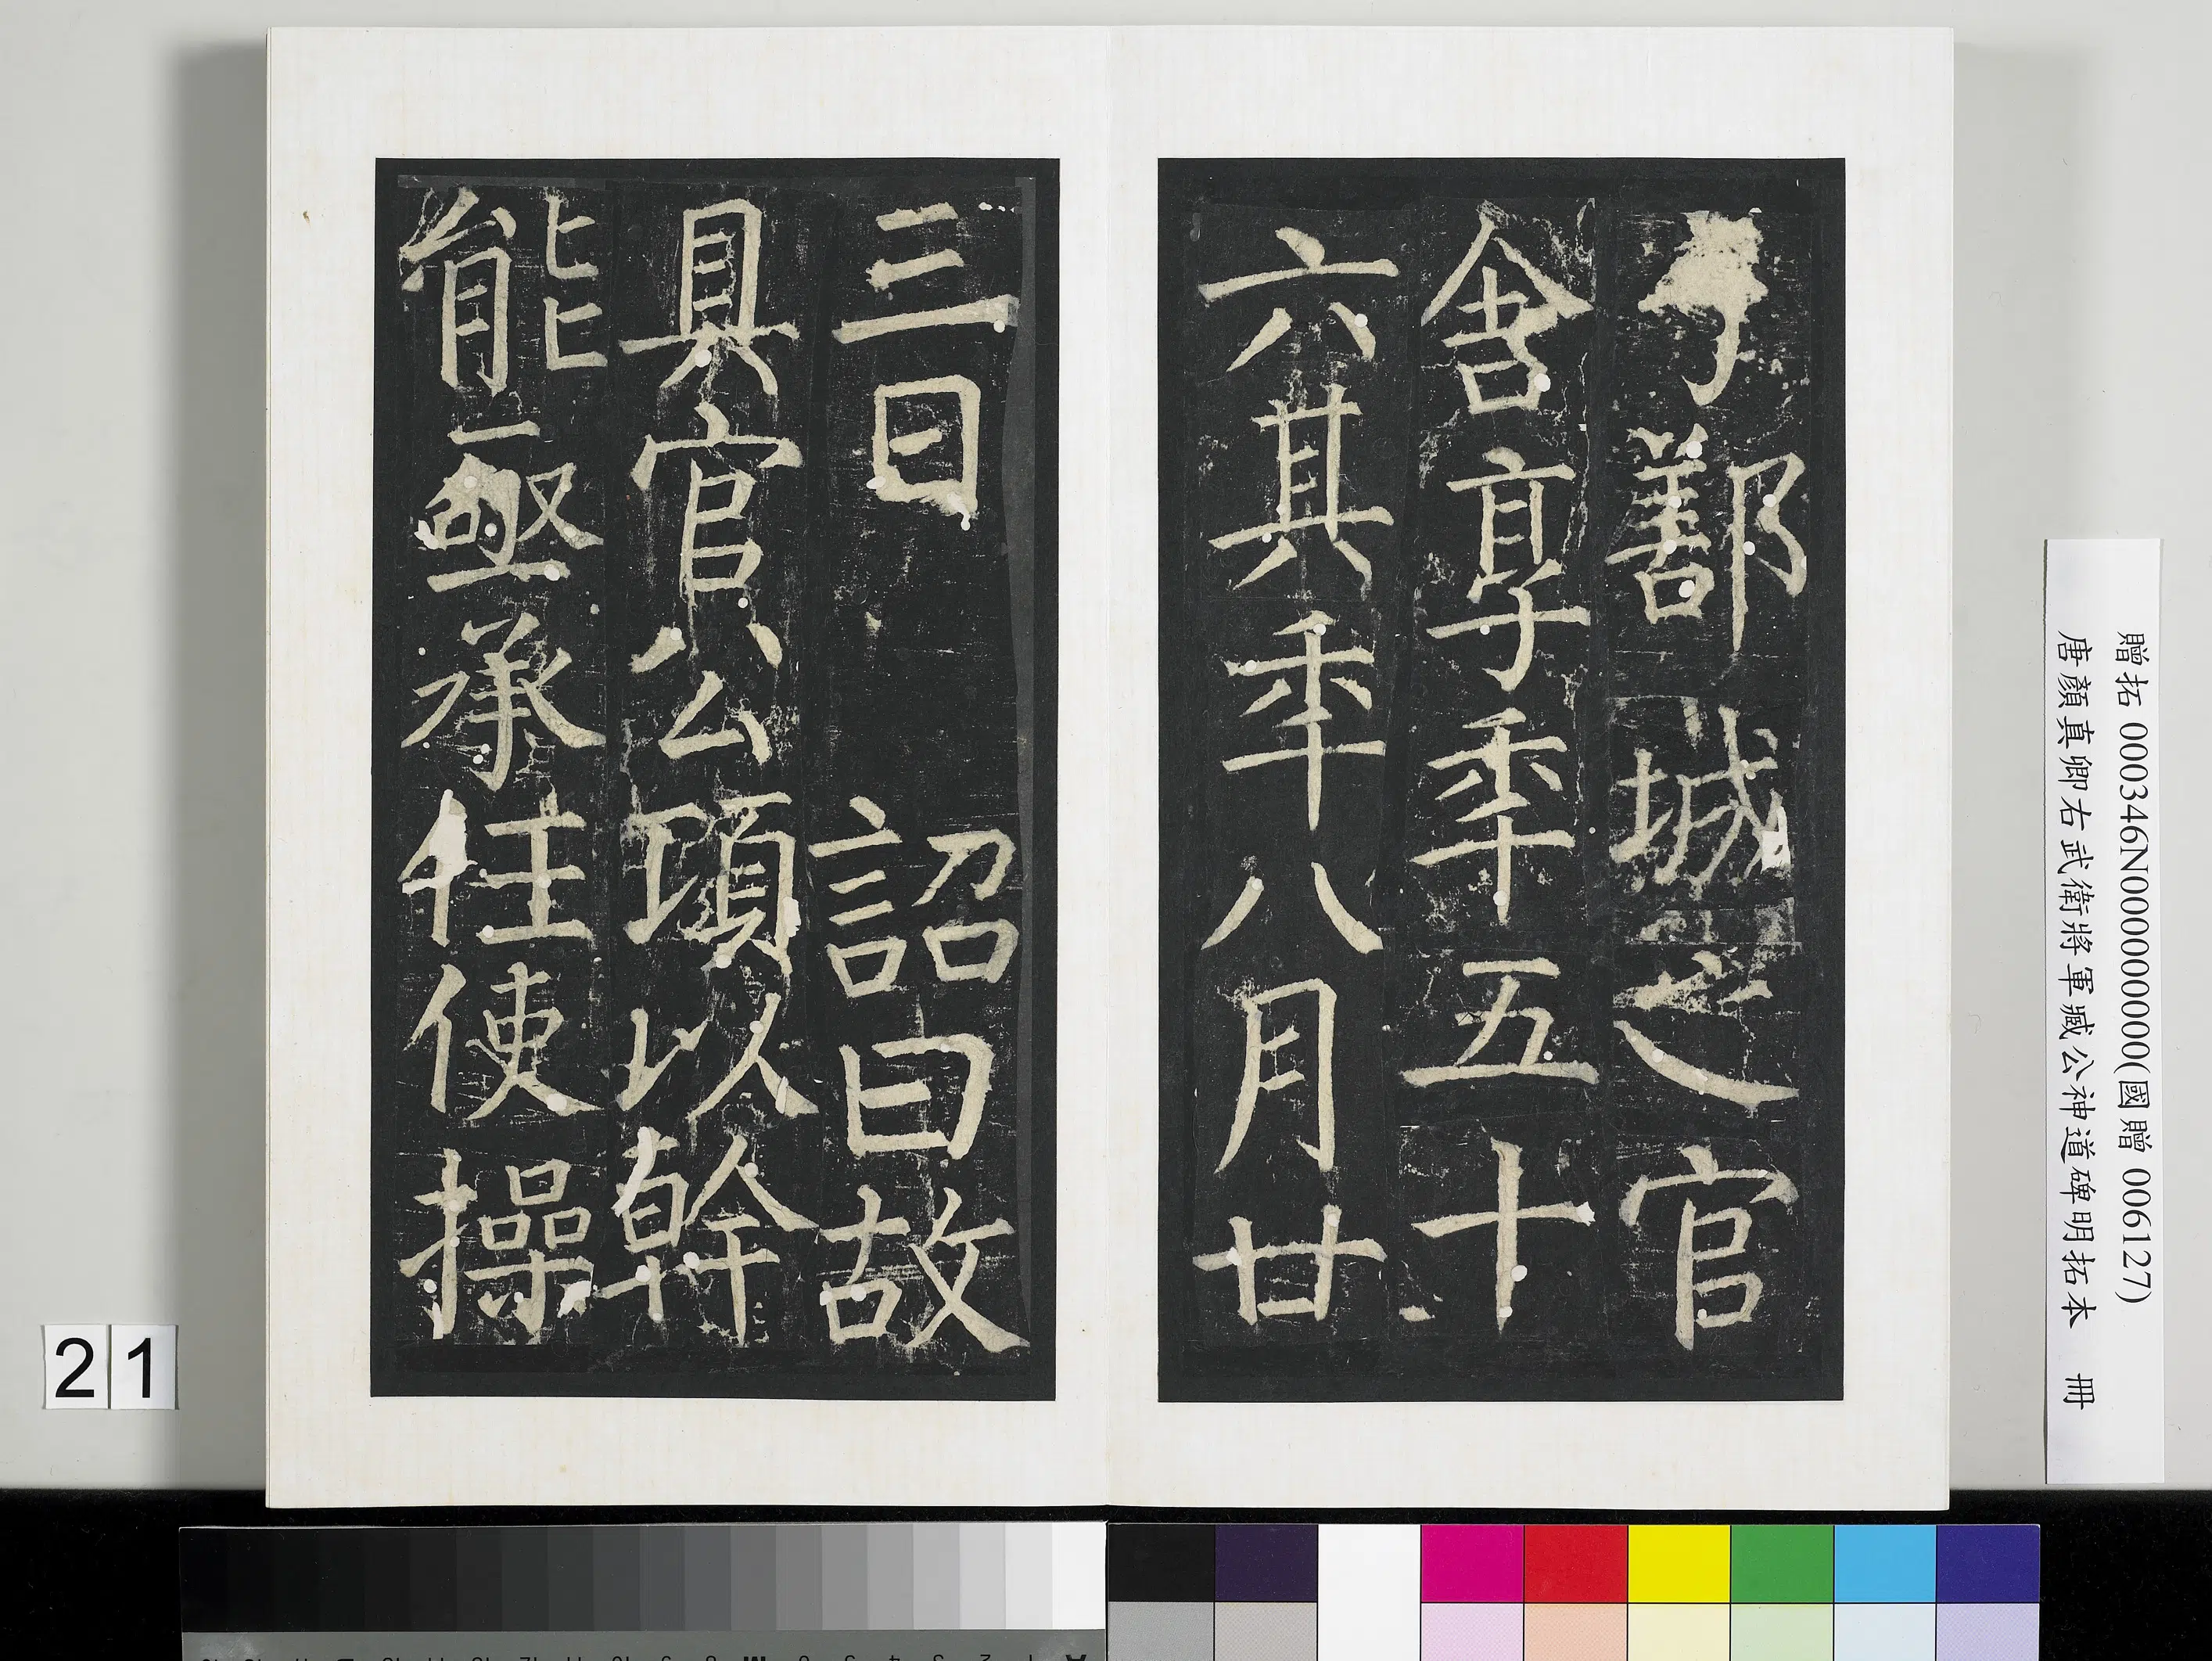 鄯城之官
舍享秊五十
六其秊八月廿
三日 詔曰故
具官公頃以幹
能亟承任使操
贈拓 000346N000000000(國贈 006127)
唐顏真卿右武衛將軍臧公神道碑明拓本 冊
21